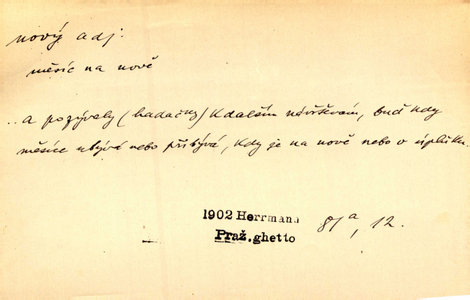 nový adj.
měsíc na nově
..a pozývaly (hadačky) k dalším návštěvám, buď kdy
měsíce ubývá nebo přibývá, kdy je na nově nebo v úplňku.
1902 Herrmann
Praž.ghetto
81a, 12.